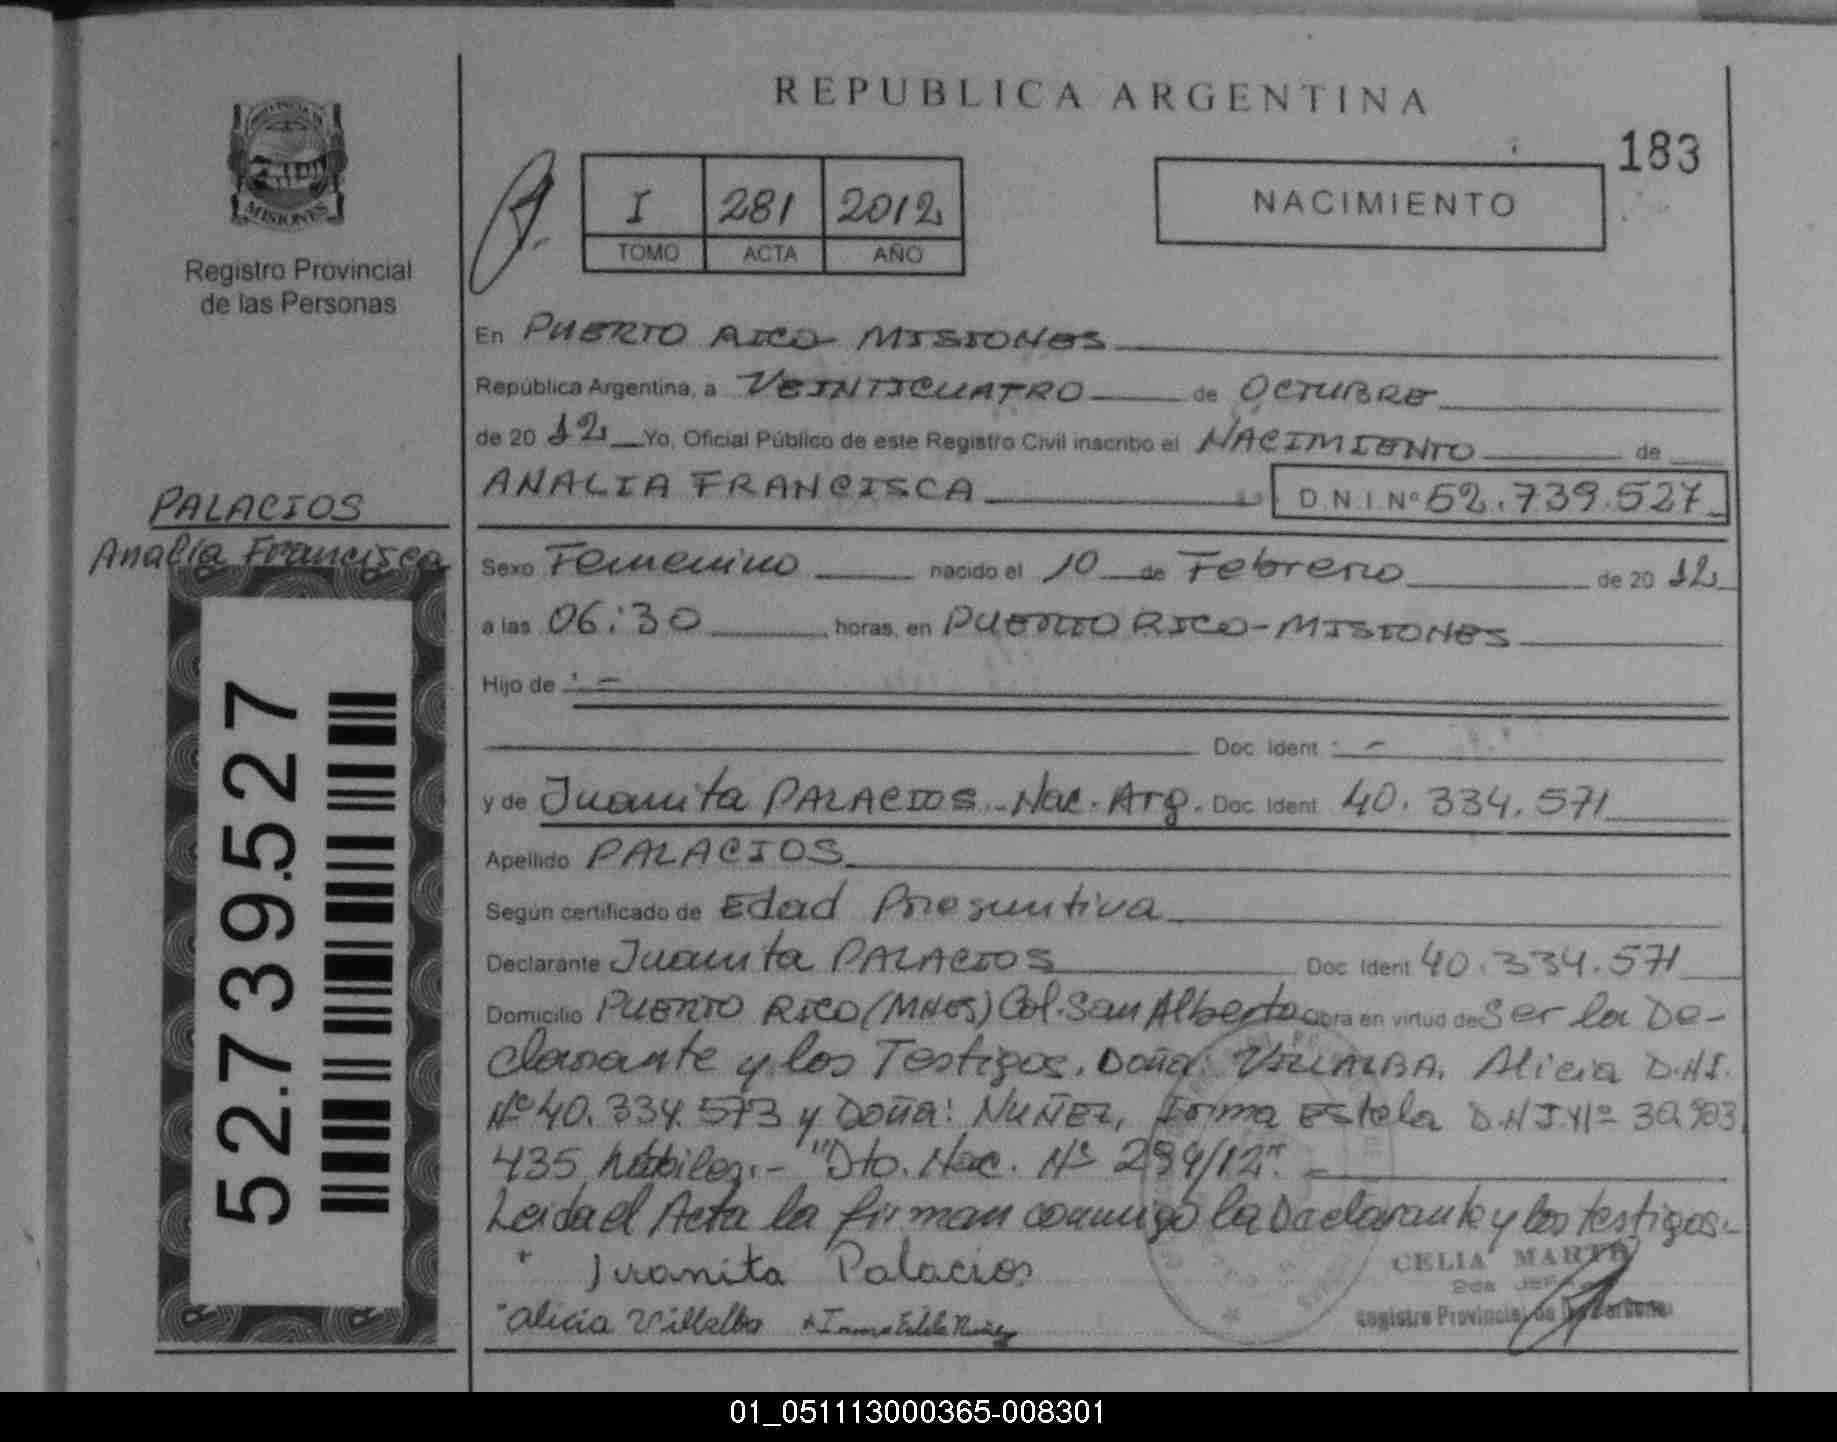 REPUBLICA ARGENTINA
183
I 281 2012
TOMO ACTA AÑO
NACIMIENTO
MISIONES
Registro Provincial
de las Personas
En PUERTO RICO - MISIONES
República Argentina, a VEINTICUATRO de OCTUBRE
de 20 12 Yo, Oficial Público de este Registro Civil inscribo el NACIMIENTO de
ANALIA FRANCISCA D.N.I. Nº 52.739.527
PALACIOS
Analía Francisca
52.739.527
Sexo Femenino nacido el 10 de Febrero de 20 12
a las 06:30 horas, en PUERTO RICO - MISIONES
Hijo de -
Doc. Ident. -
y de Juanita PALACIOS - Nac. Arg. Doc. Ident. 40.334.571
Apellido PALACIOS
Según certificado de Edad Presuntiva
Declarante Juanita PALACIOS Doc. Ident. 40.334.571
Domicilio PUERTO RICO (MNES) Col. San Alberto obra en virtud de Ser la De-
clarante y los Testigos. Doña: VILLALBA, Alicia D.N.I.
Nº 40.334.573 y Doña: NUÑEZ, Irma Estela D.N.I. Nº 30.903
435 hábiles.- "Dto. Nac. Nº 294/12".
Leida el Acta la firman conmigo la Declarante y los testigos.-
Juanita Palacios
Alicia Villalba Irma Estela Nuñez
CELIA MARTA
Registro Provincial de las Personas
01_051113000365-008301